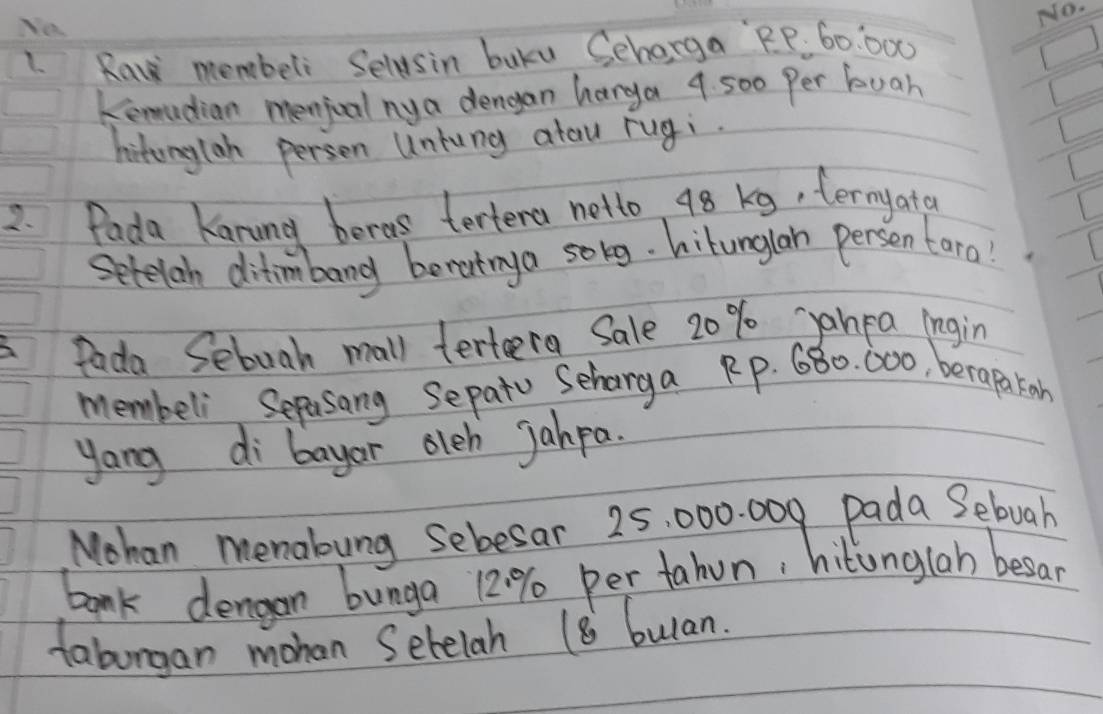 No.
No.
1. Ravi membeli Selusin buku Seharga RP. 60.000
Kemudian menjual nya dengan harga 4.500 Per buah
hitunglah persen Untung atau rugi.
2. Pada Karung beras tertera netto 48 kg, ternyata
Setelah ditimbang beratnya 50kg. hitunglah persen tara!
3 Pada Sebuah mall tertera Sale 20% Jahpa ingin
membeli Sepasang Sepatu Seharga RP. 680.000, berapakah
yang di bayar oleh Jahpa.
Mohan menabung Sebesar 25.000.000 pada Sebuah
bank dengan bunga 12% per tahun, hitunglah besar
tabungan mohan Setelah 18 bulan.